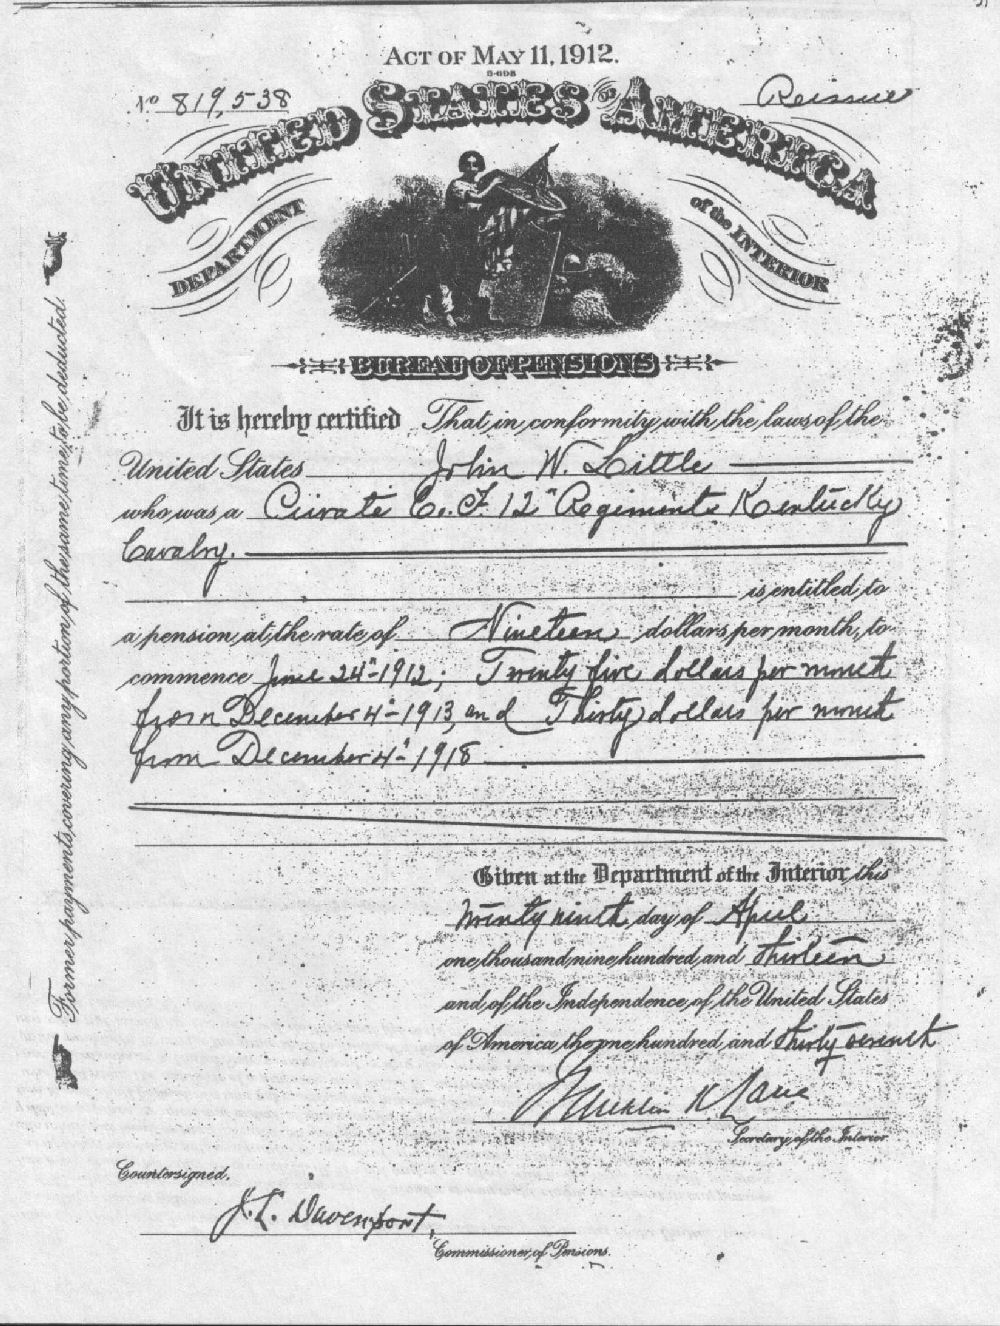 ACT OF MAY 11, 1912.
3-498
No 819,538
Reissue
UNITED STATES OF AMERICA
DEPARTMENT of the INTERIOR
BUREAU OF PENSIONS
It is hereby certified That in conformity with the laws of the
United States John W. Little
who was a Private Co. F. 12" Regiment Kentucky
Cavalry.
is entitled to
a pension at the rate of Nineteen dollars per month, to
commence June 24"-1912; Twenty five dollars per month
from December 4"-1913, and Thirty dollars per month
from December 4"-1918
Given at the Department of the Interior this
Twenty ninth day of April
one thousand nine hundred and thirteen
and of the Independence of the United States
of America the one hundred and thirty seventh
Franklin K Lane
Secretary of the Interior
Countersigned,
J.L. Davenport,
Commissioner of Pensions.
Former payments covering any portion of the same time to be deducted.